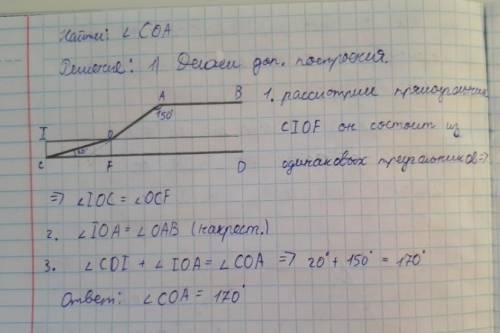 Найти: ∠COA
Решение: 1) Делаем доп. построения.
A B
150°
1. рассмотрим прямоугольник
I O
CIOF он состоит из
C F D
одинаковых треугольников ⇒
⇒ ∠IOC = ∠OCF
2. ∠IOA = ∠OAB (накрест.)
3. ∠COI + ∠IOA = ∠COA ⇒ 20° + 150° = 170°
Ответ: ∠COA = 170°